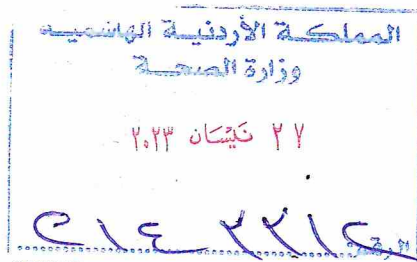 المملكة الأردنية الهاشمية
وزارة الصحة
٢٧ نيسان ٢٠٢٣
الرقم